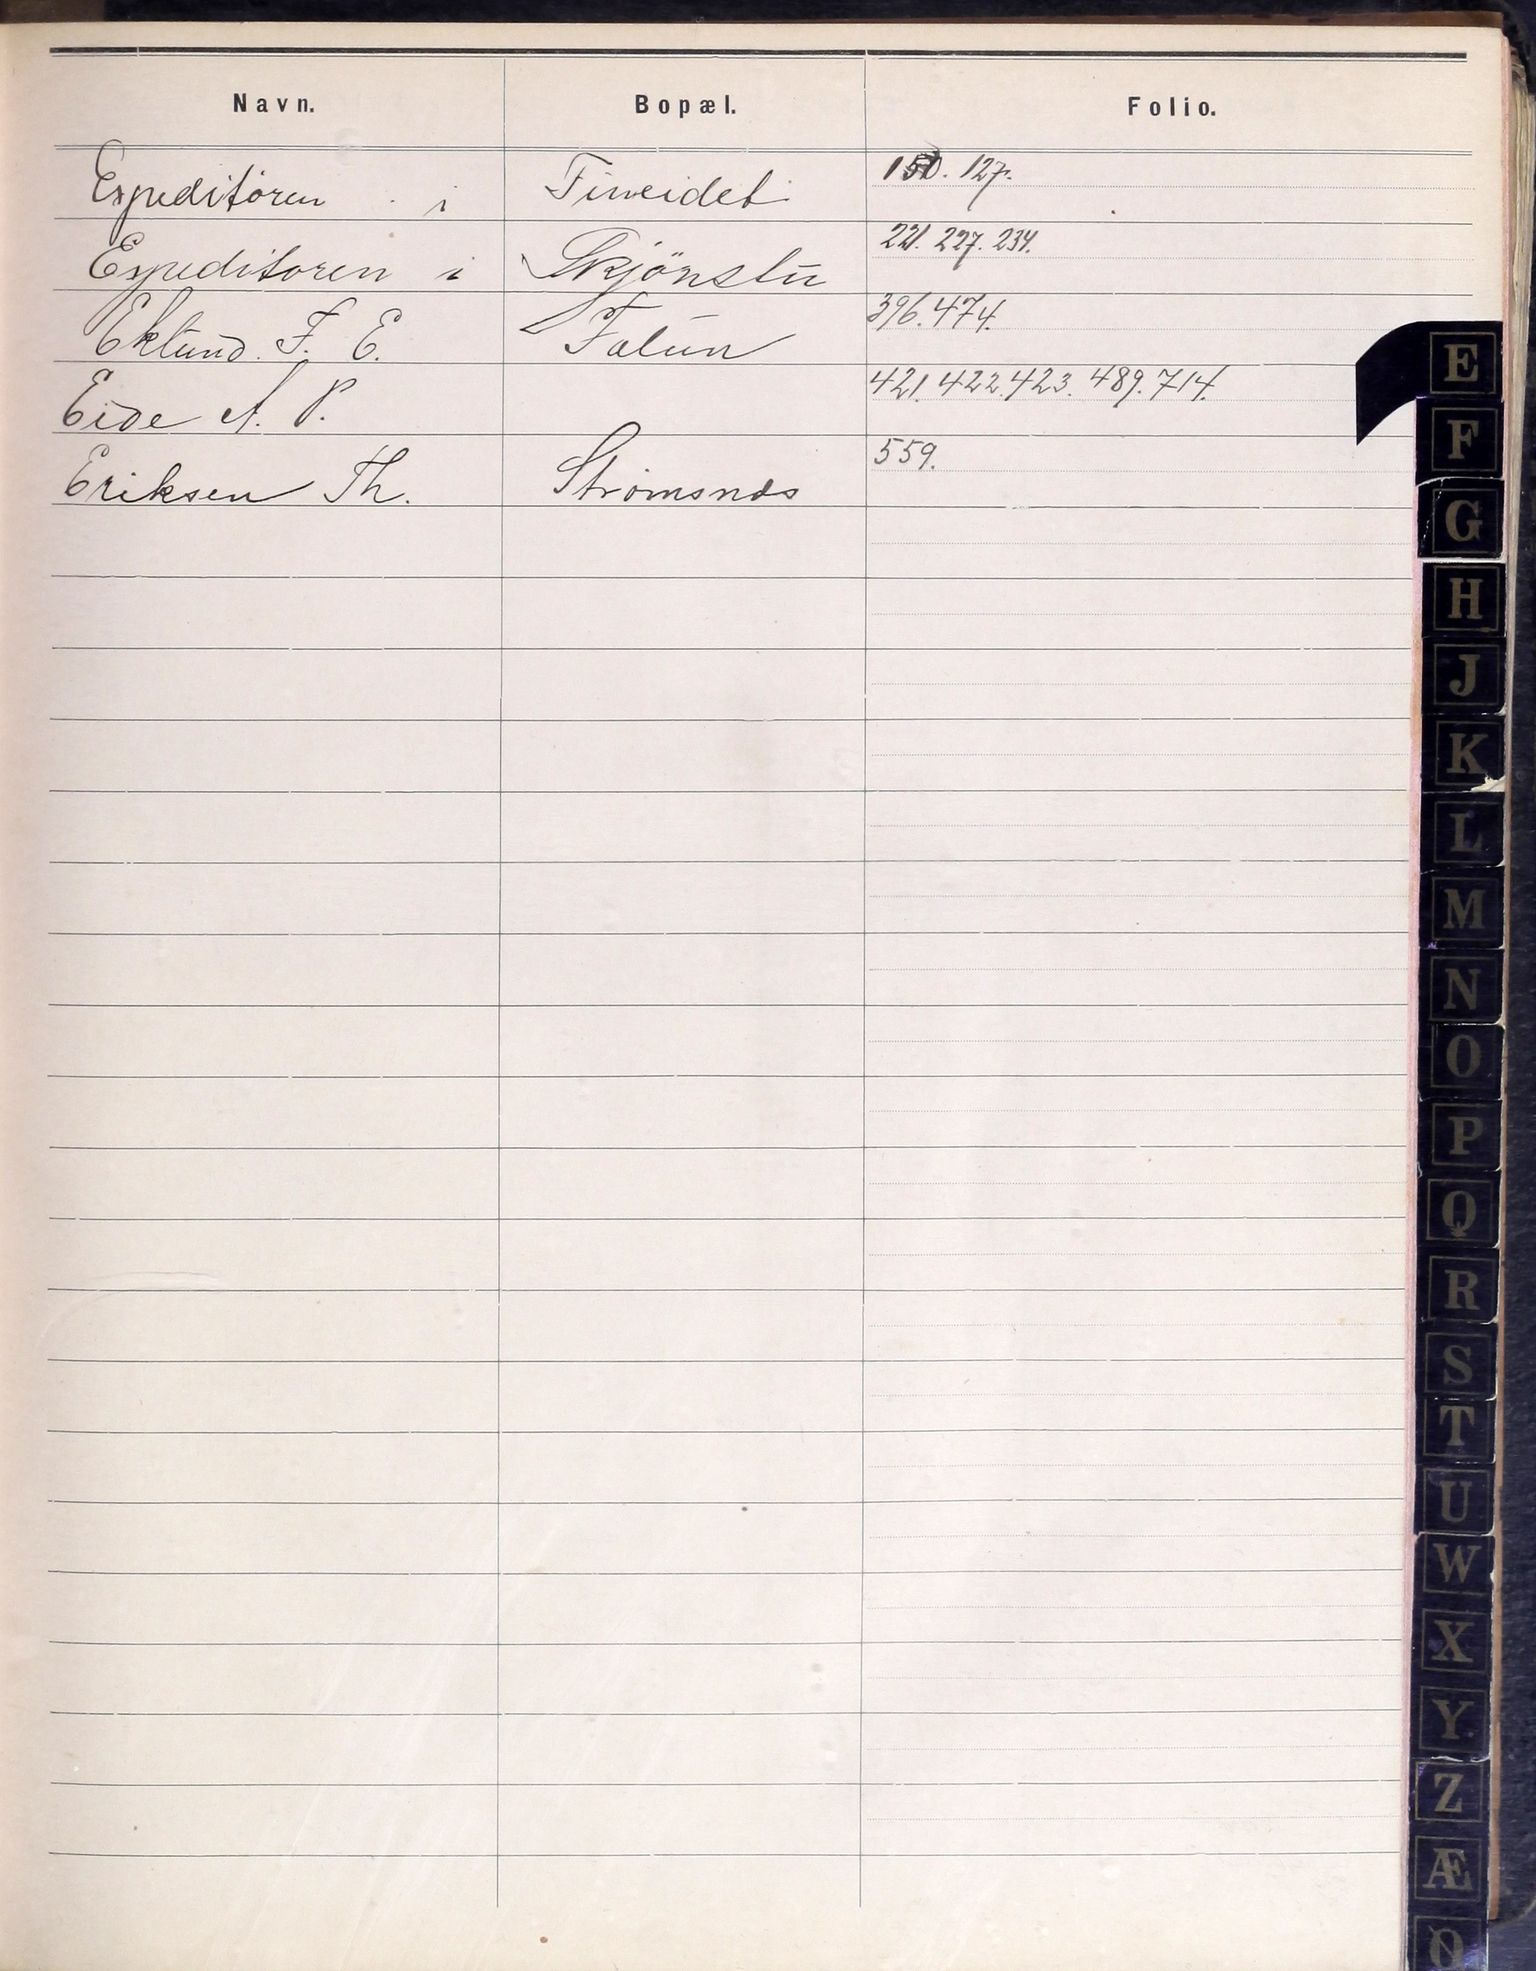 Navn. Bopæl. Folio.
Expeditören i Fineidet 127.
Expeditoren i Skjönstu 221. 227. 234.
Eklund F. E. Falun 396. 474.
Eide A. P. 421. 422. 423. 489. 714.
Eriksen Th. Strømsnes 559.
E
F
G
H
J
K
L
M
N
O
P
Q
R
S
T
U
W
X
Y
Z
Æ
Ø